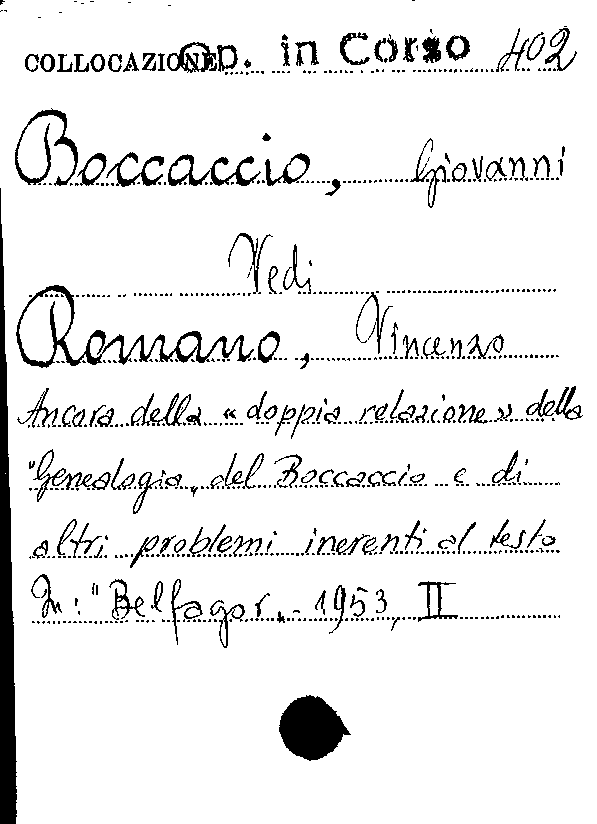 COLLOCAZIONE Op. in Corso 402
Boccaccio, Giovanni
Vedi
Romano, Vincenzo
Ancora della «doppia relazione» della
"Genealogia„ del Boccaccio e di
altri problemi inerenti al testo
In: "Belfagor„ - 1953, II